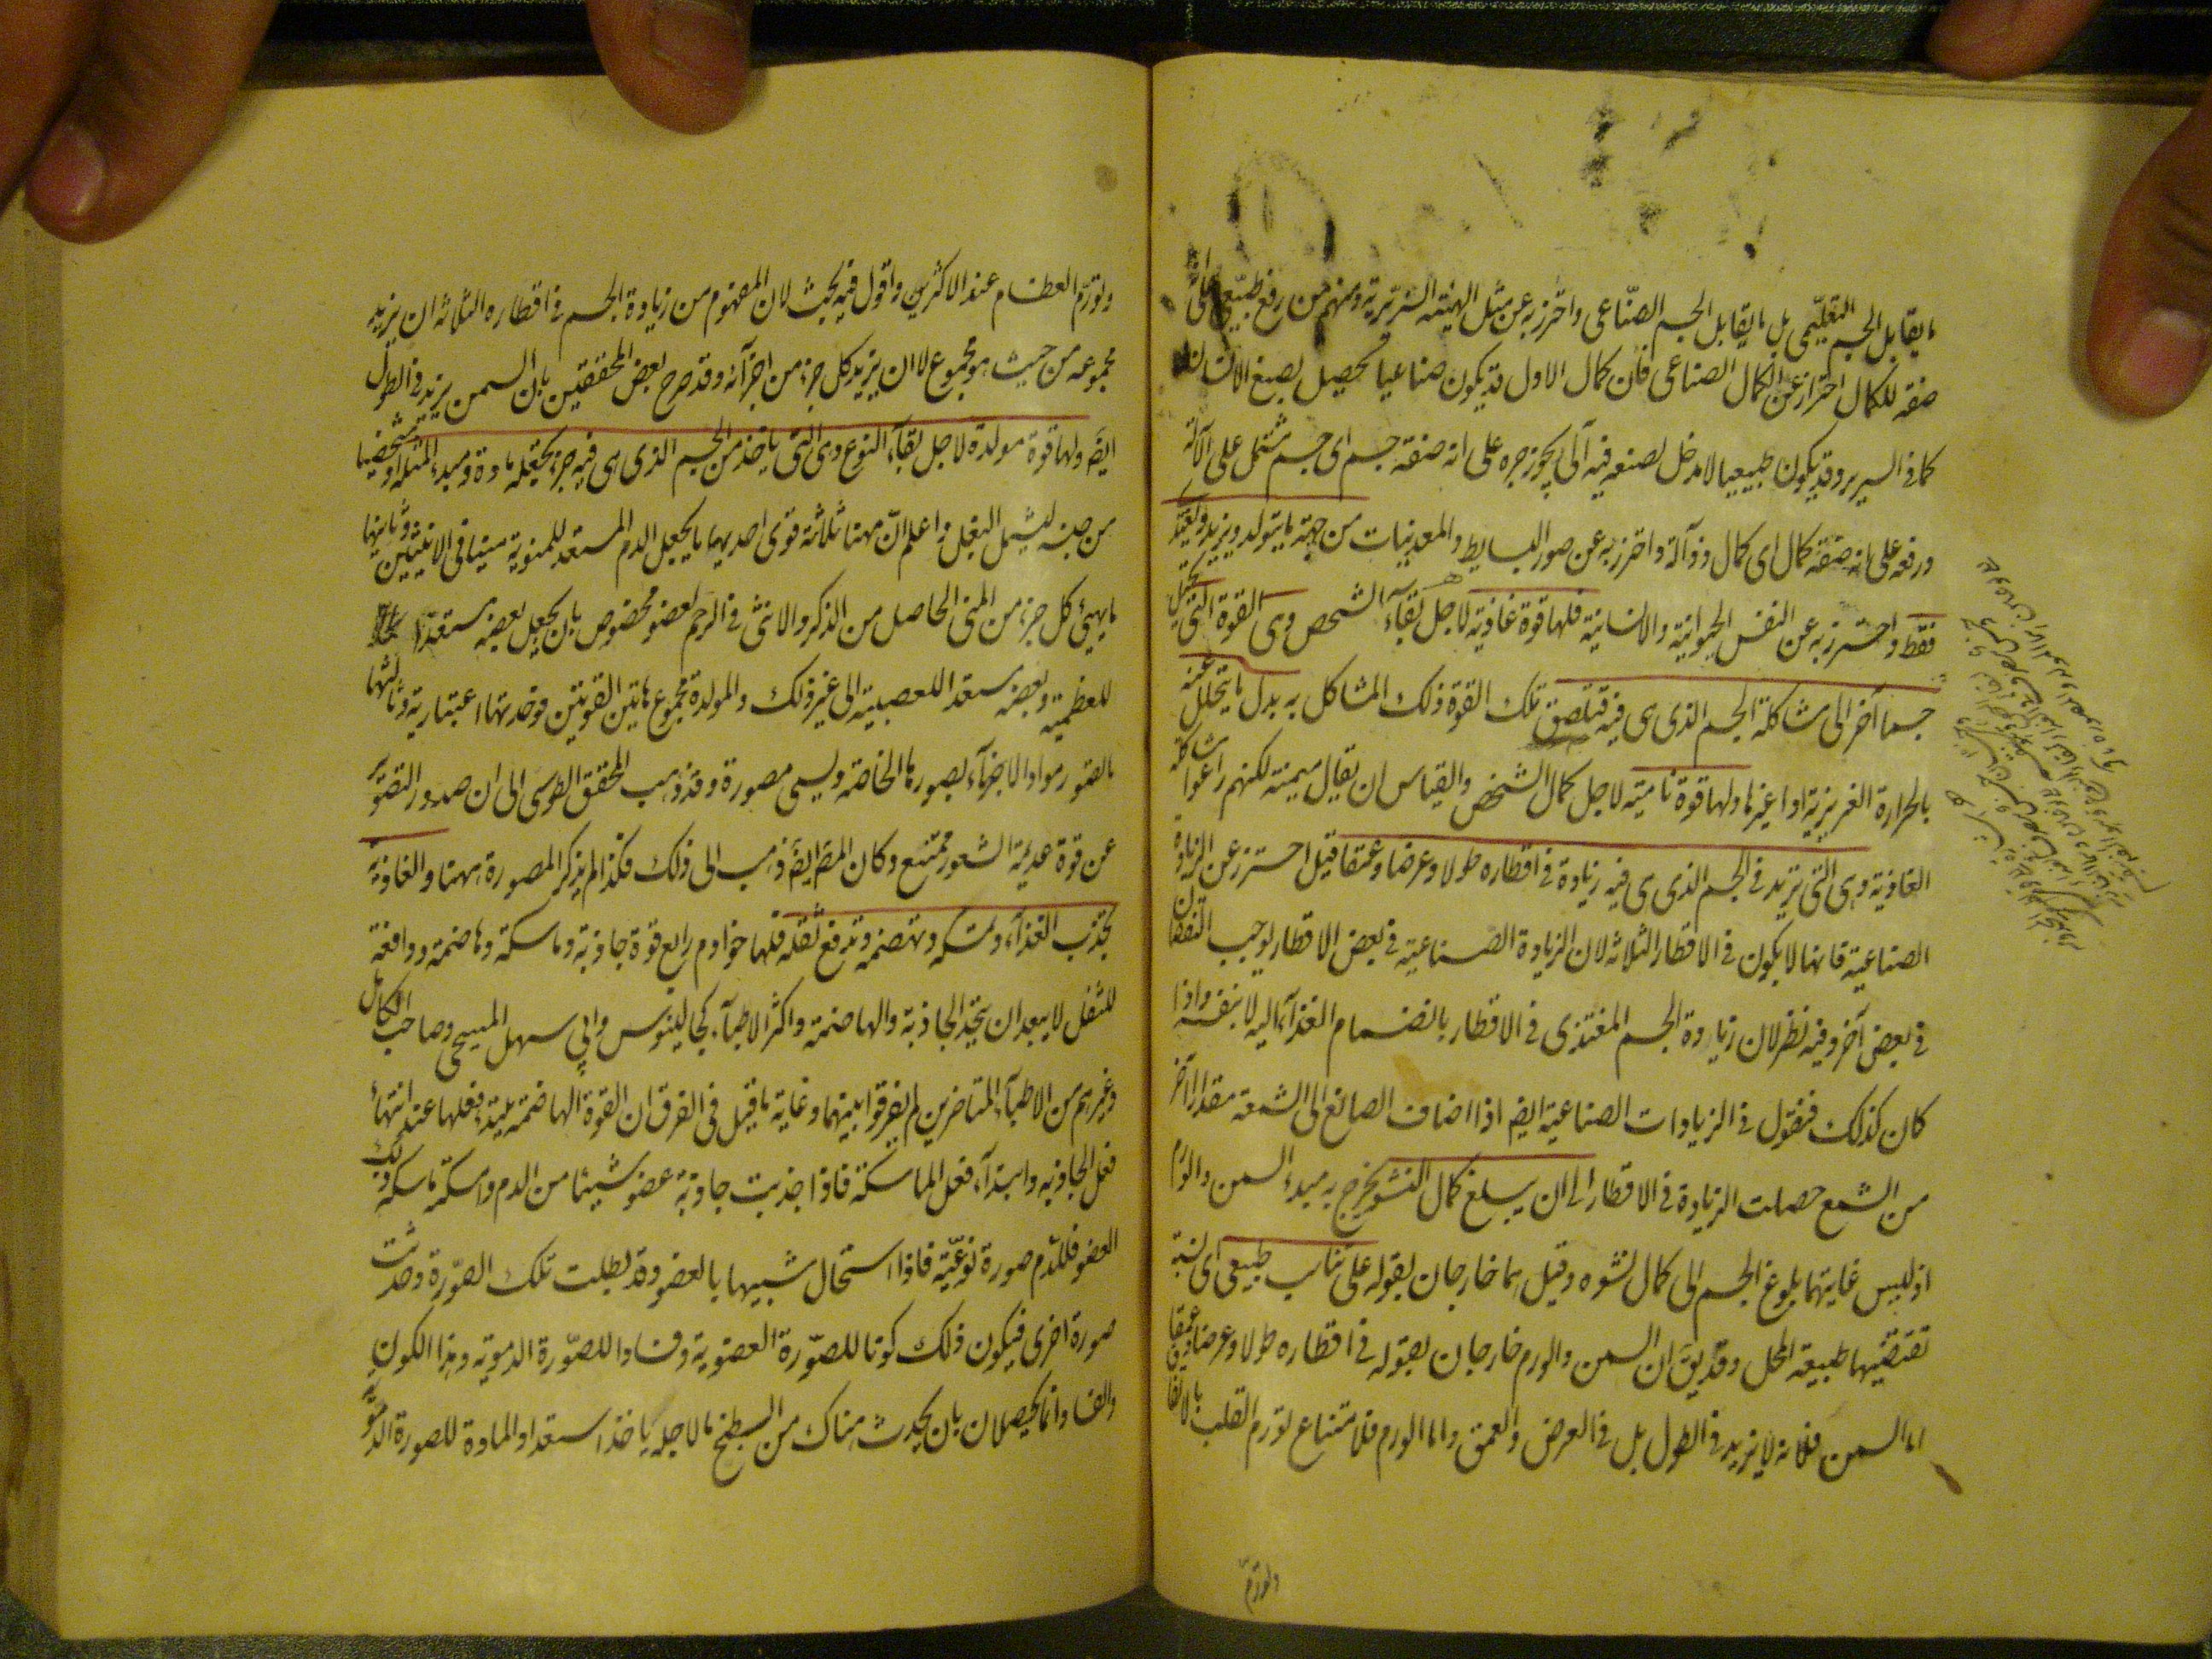 ما يقابل الجسم التعليمى بل ما يقابل الجسم الصّناعى واحترز به عن مثل الهيئة السريرية ومنهم من رفع طبيعى على انه
صفة للكمال احترازا عن الكمال الصناعى فان الكمال الاول قد يكون صناعيا يحصل بصنع الانسان
كما فى السرير وقد يكون طبيعيا لا مدخل لصنعه فيه آلى يجوز جره على انه صفة جسم اى جسم مشتمل على الآلة
ورفعه على انه صفة كمال اى كمال ذو آلة واحترز به عن صور البسايط والمعدنيات من جهة ما يتولد ويزيد ويغتذ
فقط واحترز به عن النفس الحيوانية والانسانية فلها قوة غاذية لاجل بقآء الشخص وهى القوة التى تحيل
جسما آخر الى مشاكلة الجسم الذى هى فيه فتلصق تلك القوة ذلك المشاكل به بدل ما يتحلل عنه
بالحرارة الغريزية او غيرها ولها قوة نامية لاجل كمال الشخص والقياس ان يقال منمية لكنهم راعوا مشاكلة
الغاذية وهى التى تزيد فى الجسم الذى هى فيه زيادة فى اقطاره طولا وعرضا وعمقا قيل احترز عن الزيادة
الصناعية فانها لا يكون فى الاقطار الثلاثة لان الزيادة الصناعية فى بعض الاقطار يوجب النقصان
فى بعض آخر وفيه نظر لان زيادة الجسم المغتذى فى الاقطار بانضمام الغذآء اليه لا بنفسه واذا
كان كذلك فنقول فى الزيادات الصناعية ايضا اذا اضاف الصانع الى الشمعة مقدارا آخر
من الشمع حصلت الزيادة فى الاقطار الى ان يبلغ كمال النشو يخرج به مبدء السمن والورم
اذ ليس غايتهما بلوغ الجسم الى كمال نشوه وقيل هما خارجان بقوله على تناسب طبيعى اى نسبة
تقتضيها طبيعة المحل وقد يق ان السمن والورم خارجان بقوله فى اقطاره طولا وعرضا وعمقا
اما السمن فلانه لا يزيد فى الطول بل فى العرض والعمق واما الورم فلامتناع تورم القلب بالاتفاق
وتورّم
وتورّم العظام عند الاكثرين واقول فيه بحث لان المفهوم من زيادة الجسم فى اقطاره الثلاثة ان يزيد
مجموعه من حيث هو مجموع لا ان يزيد كل جزء من اجزآئه وقد صرح بعض المحققين بان السمن يزيد فى الطول
ايضَ ولها قوة مولدة لاجل بقآء النوع وهى التى ياخذ من الجسم الذى هى فيه جزء يجعله مادة ومبدء لمثله او شخصا
من جنسه ليشمل البغل واعلم انّ ههنا ثلاثة قوى احديها ما يجعل الدم المستعد للمنوية منيا فى الانثيين وثانيها
ما يهيئ كل جزء من المنى الحاصل من الذكر والانثى فى الرحم لعضو مخصوص بان يجعل بعضه مستعدّا
للعظمية وبعضه مستعدا للعصبية الى غير ذلك والمولدة مجموع هاتين القوتين فوحدتها اعتبارية وثالثها
ما تصور مواد الاجزآء بصورها الخاصة ويسمى مصورة وقد ذهب المحقق الطوسى الى ان صدور التصوّر
عن قوة عديمة الشعور ممتنع وكان المص ايضَ ذهب الى ذلك فلذا لم يذكر المصورة ههنا والغاذية
تجذب الغذآء وتمسكه وتهضمه وتدفع ثقله فلها خوادم رابع قوة جاذبة وماسكة وهاضمة ودافعة
للثقل لا يبعد ان يتحد الجاذبة والهاضمة واكثر الاطبآء كجالينوس وابى سهل المسيحى وصاحب الكامل
وغيرهم من الاطبآء المتاخرين لم يفرقوا بينهما وغاية ما قيل فى الفرق ان القوة الهاضمة يبتدء فعلها عند انتهاء
فعل الجاذبة وابتدآء فعل الماسكة فاذا جذبت جاذبة عضو شيئا من الدم وامسكته ماسكة ذلك
العضو فللدّم صورة نوعيّة فاذا استحال شبيها بالعضو فقد بطلت تلك الصّورة وحدثت
صورة اخرى فيكون ذلك كونا للصّورة العضوية وفسادا للصّورة الدموية وهذا الكون
والفساد انما يحصلان بان يحدث هناك من الطبخ ما لاجله ياخذ استعداد المادة للصورة الدمويّة